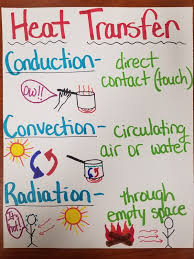 Heat Transfer
Conduction- direct
contact (touch)
Oww!!
Convection- circulating
air or water
Radiation- through
empty space
It's
hot!